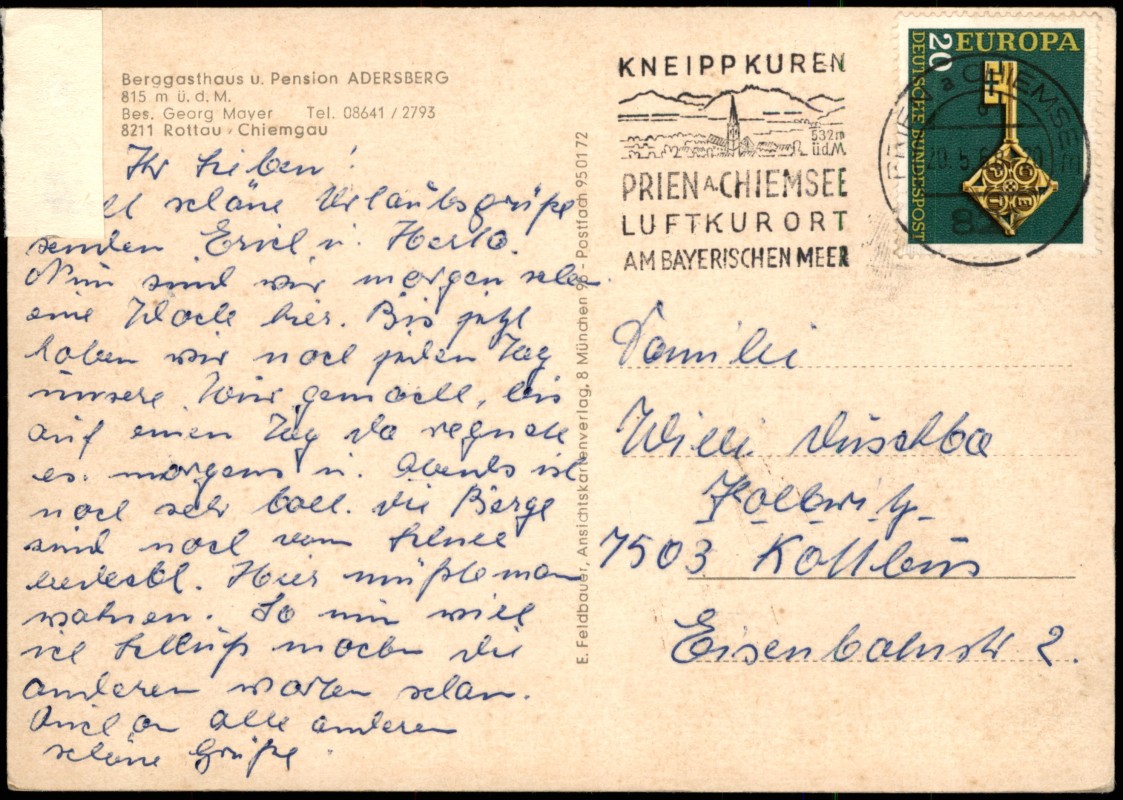 Berggasthaus u. Pension ADERSBERG
815 m ü. d. M.
Bes. Georg Mayer Tel. 08641 / 2793
8211 Rottau · Chiemgau
Ihr Lieben!
schöne Urlaubsgrüße
senden Erich u.
Nun sind wir morgen schon
eine Woche hier. Bis jetzt
haben wir noch jeden Tag
unsere Tour gemacht, bis
auf einen Tag da regnete
es. morgens u. Abends ist
noch sehr kalt. die Berge
sind noch vom Schnee
bedeckt. Hier müßte man
wohnen. So nun will
ich Schluß machen die
anderen warten schon.
Auch an alle anderen
schöne Grüße
E. Feldbauer, Ansichtskartenverlag, 8 München 95 - Postfach 950172
KNEIPPKUREN
532m
üdM
PRIEN A. CHIEMSEE
LUFTKURORT
AM BAYERISCHEN MEER
EUROPA
20
DEUTSCHE BUNDESPOST
CEPT
PRIEN a CHIEMSEE
20.5.
Familie
Willi Duschka
7503 Kottbus
Eisenbahnstr 2.